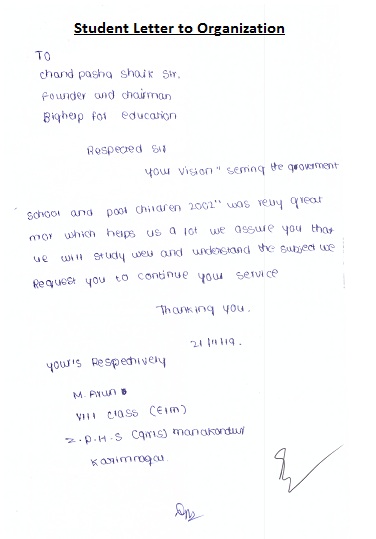 Student Letter to Organization
TO
chand pasha shaik sir.
Founder and chairman
Bighelp for education
Respected Sir
your vision " serving the government
school and poor children 2002" was very great
mor which helps us a lot we assure you that
we will study well and understand the subject we
Request you to continue your service
Thanking you.
21/11/19.
your's Respectively
M. Arun
VIII class (E|M)
Z.P.H.S (Qms) manakondur
Karimnagar.